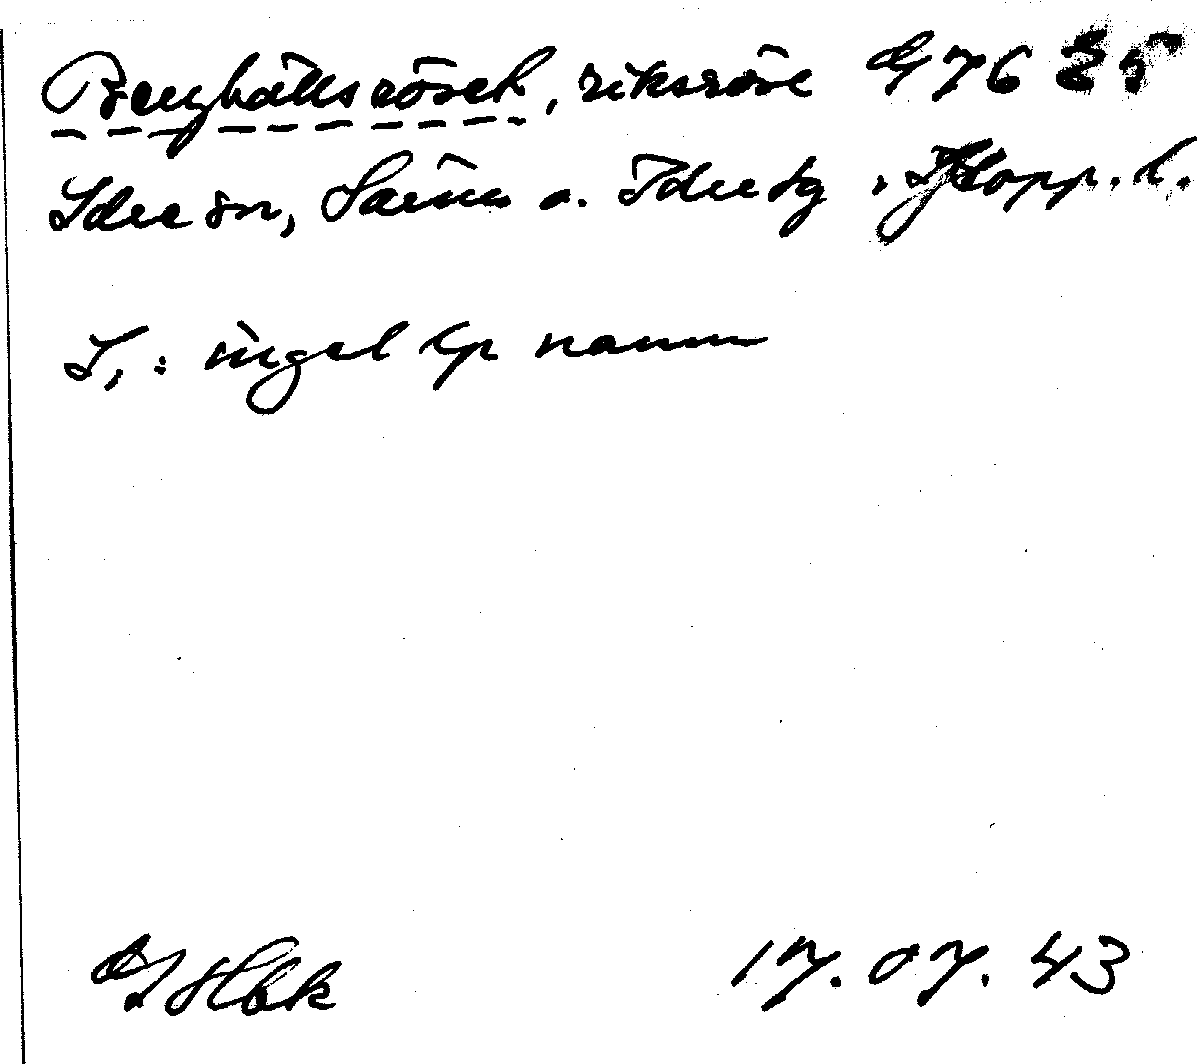 Berghällsröset, riksröse G 76 25
Idre sn, Särna o. Idre tg, Kopp. l.
I,: inget lp namn
GHbk 17.07.43